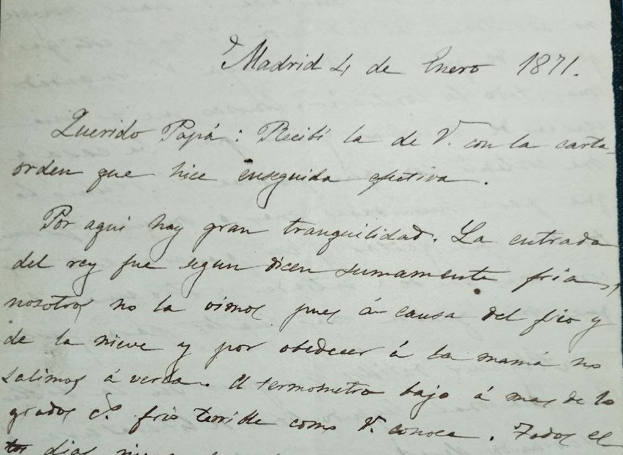 Madrid 4 de Enero 1871.
Querido Papá: Recibí la de V. con la carta-
orden que hice enseguida efectiva.
Por aqui hay gran tranquilidad. La entrada
del rey fue segun dicen sumamente fria,
nosotros no la vimos pues á causa del frio y
de la nieve y por obedecer á la mamá no
salimos á verla. El termometro bajo á mas de 10
grados frio terrible como V. conoce. Todos
dias